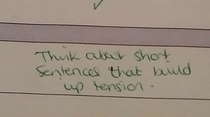 Think about short
sentences that build
up tension.